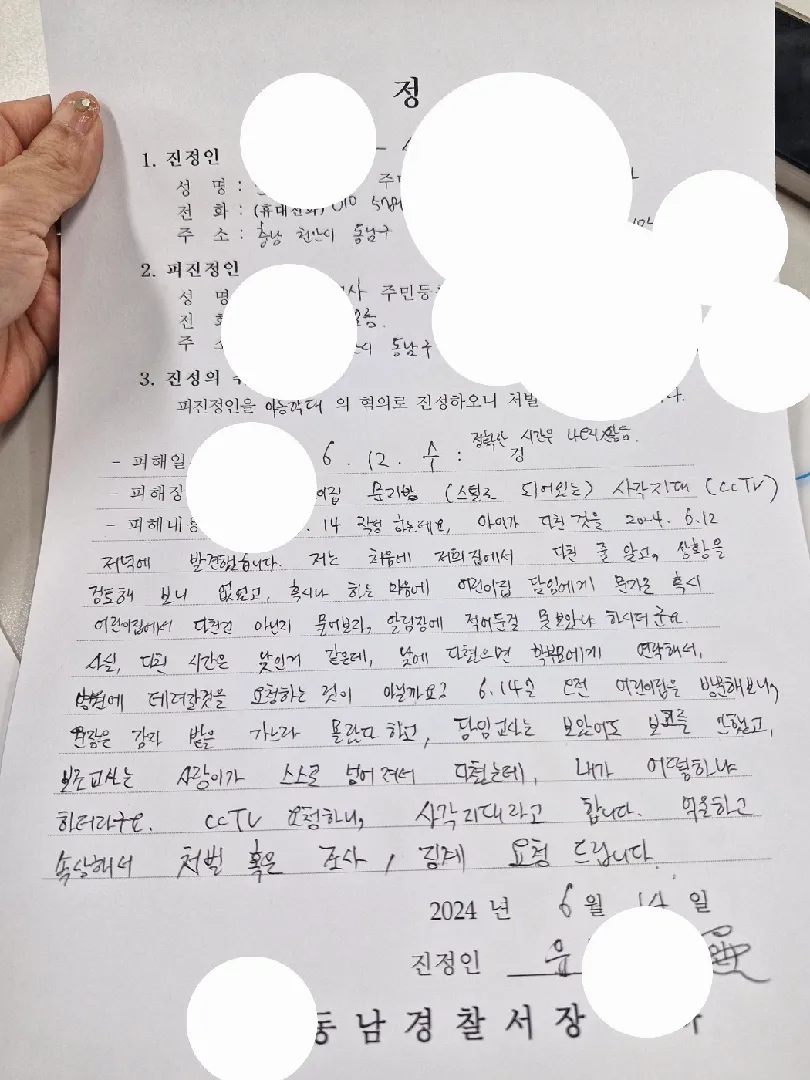 정
1. 진정인
성 명 :
전 화 : (휴대전화) 010
주 소 : 충남 천안시 동남구
2. 피진정인
성 명 사 주민등
전 화
주 소 동남구
3. 진정의
피진정인을 아동학대 의 혐의로 진정하오니 처벌 다.
정확한 시간은
- 피해일 6. 12. 수 :
- 피해장 이집 문지방 (스틸로 되어있는) 사각지대 (CCTV)
- 피해내용 . 14 작성 하는데요, 아이가 다친 것을 2024. 6.12
저녁에 발견했습니다. 저는 처음에 저희집에서 다친 줄 알고, 상황을
검토해 보니 없었고, 혹시나 하는 마음에 어린이집 담임에게 문자로 혹시
어린이집에서 다친건 아닌지 물어보라, 알림장에 적어둔걸 못보았냐 하시더군요.
사실, 다친 시간은 낮인거 같은데, 낮에 다쳤으면 학부모에게 연락해서,
병원에 데려갈것을 요청하는 것이 아닐까요? 6.14일 오전 어린이집을 방문해보니,
원장은 감자 밭을 가느라 몰랐다 하고, 담임교사는 보았어도 보고를 안했고,
보조교사는 사랑이가 스스로 넘어져서 다쳤는데, 내가 어떻하냐
하더라구요. CCTV 요청하니, 사각지대라고 합니다. 억울하고
속상해서 처벌 혹은 조사, 징계 요청 드립니다.
2024 년 6 월 14 일
진정인 윤
동남경찰서장